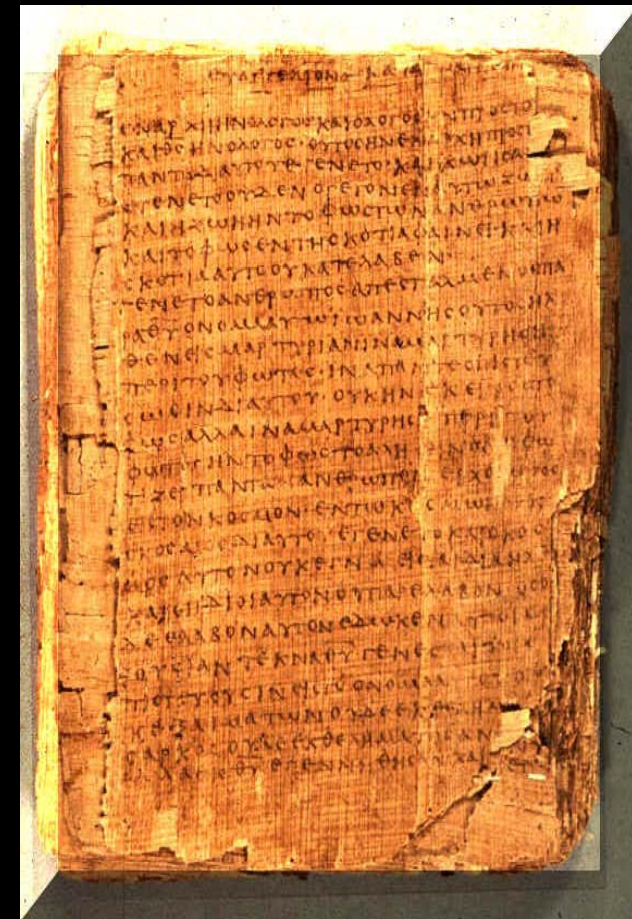 ΕΝΑΡΧΗΗΝΟΛΟΓΟΣΚΑΙΟΛΟΓΟΣΗΝΠΡΟΣΤΟ
ΚΑΙΘΣΗΝΟΛΟΓΟΣ·ΟΥΤΟΣΗΝΕΝΑΡΧΗΠΡΟΣΤ
ΠΑΝΤΑΔΙΑΥΤΟΥΕΓΕΝΕΤΟ·ΚΑΙΧΩΡΙΣΑ
ΕΓΕΝΕΤΟΟΥΔΕΝΟΓΕΓΟΝΕΝΕΝΑΥΤΩΖΩ
ΚΑΙΗΖΩΗΗΝΤΟΦΩΣΤΩΝΑΝΘΡΩΠΩ
ΚΑΙΤΟΦΩΣΕΝΤΗΣΚΟΤΙΑΦΑΙΝΕΙ·ΚΑΙΗ
ΣΚΟΤΙΑΑΥΤΟΟΥΚΑΤΕΛΑΒΕΝ·
ΕΓΕΝΕΤΟΑΝΘΡΩΠΟΣΑΠΕΣΤΑΛΜΕΝΟΣΠΑ
ΡΑΘΥΟΝΟΜΑΑΥΤΩΙΩΑΝΝΗΣΟΥΤΟΣΗΛ
ΘΕΝΕΙΣΜΑΡΤΥΡΙΑΝΙΝΑΜΑΡΤΥΡΗΣΗ
ΠΕΡΙΤΟΥΦΩΤΟΣ·ΙΝΑΠΑΝΤΕΣΠΙΣΤΕΥ
ΣΩΣΙΝΔΙΑΥΤΟΥ·ΟΥΚΗΝΕΚΕΙΝΟΣΤΟ
ΦΩΣΑΛΛΑΙΝΑΜΑΡΤΥΡΗΣΗΠΕΡΙΤΟΥ
ΦΩΤΟΣΗΝΤΟΦΩΣΤΟΑΛΗΘΙΝΟΝΟΦΩ
ΤΙΖΕΙΠΑΝΤΑΑΝΘΡΩΠΟΝΕΡΧΟΜΕΝΟΝ
ΕΙΣΤΟΝΚΟΣΜΟΝ·ΕΝΤΩΚΟΣΜΩΗΝ
ΚΟΣΜΟΣΔΙΑΥΤΟΥΕΓΕΝΕΤΟΚΑΙΟΚΟΣ
ΜΟΣΑΥΤΟΝΟΥΚΕΓΝΩΕΙΣΤΑΙΔΙΑΗΛΘΕ
ΚΑΙΟΙΙΔΙΟΙΑΥΤΟΝΟΥΠΑΡΕΛΑΒΟΝ·ΟΣΟ
ΔΕΕΛΑΒΟΝΑΥΤΟΝΕΔΩΚΕΝΑΥΤΟΙΣ
ΞΟΥΣΙΑΝΤΕΚΝΑΘΥΓΕΝΕΣΘΑΙ
ΠΙΣΤΕΥΟΥΣΙΝΕΙΣΤΟΟΝΟΜΑ
ΑΙΜΑΤΩΝΟΥΔΕΕΚΘΕΛΗΜΑ
ΣΑΡΚΟΣΟΥΔΕΕΚΘΕΛΗΜΑΤΟΣΑΝ
ΑΛΛΕΚΘΥΕΓΕΝΝΗΘΗΣΑΝΚΑΙ